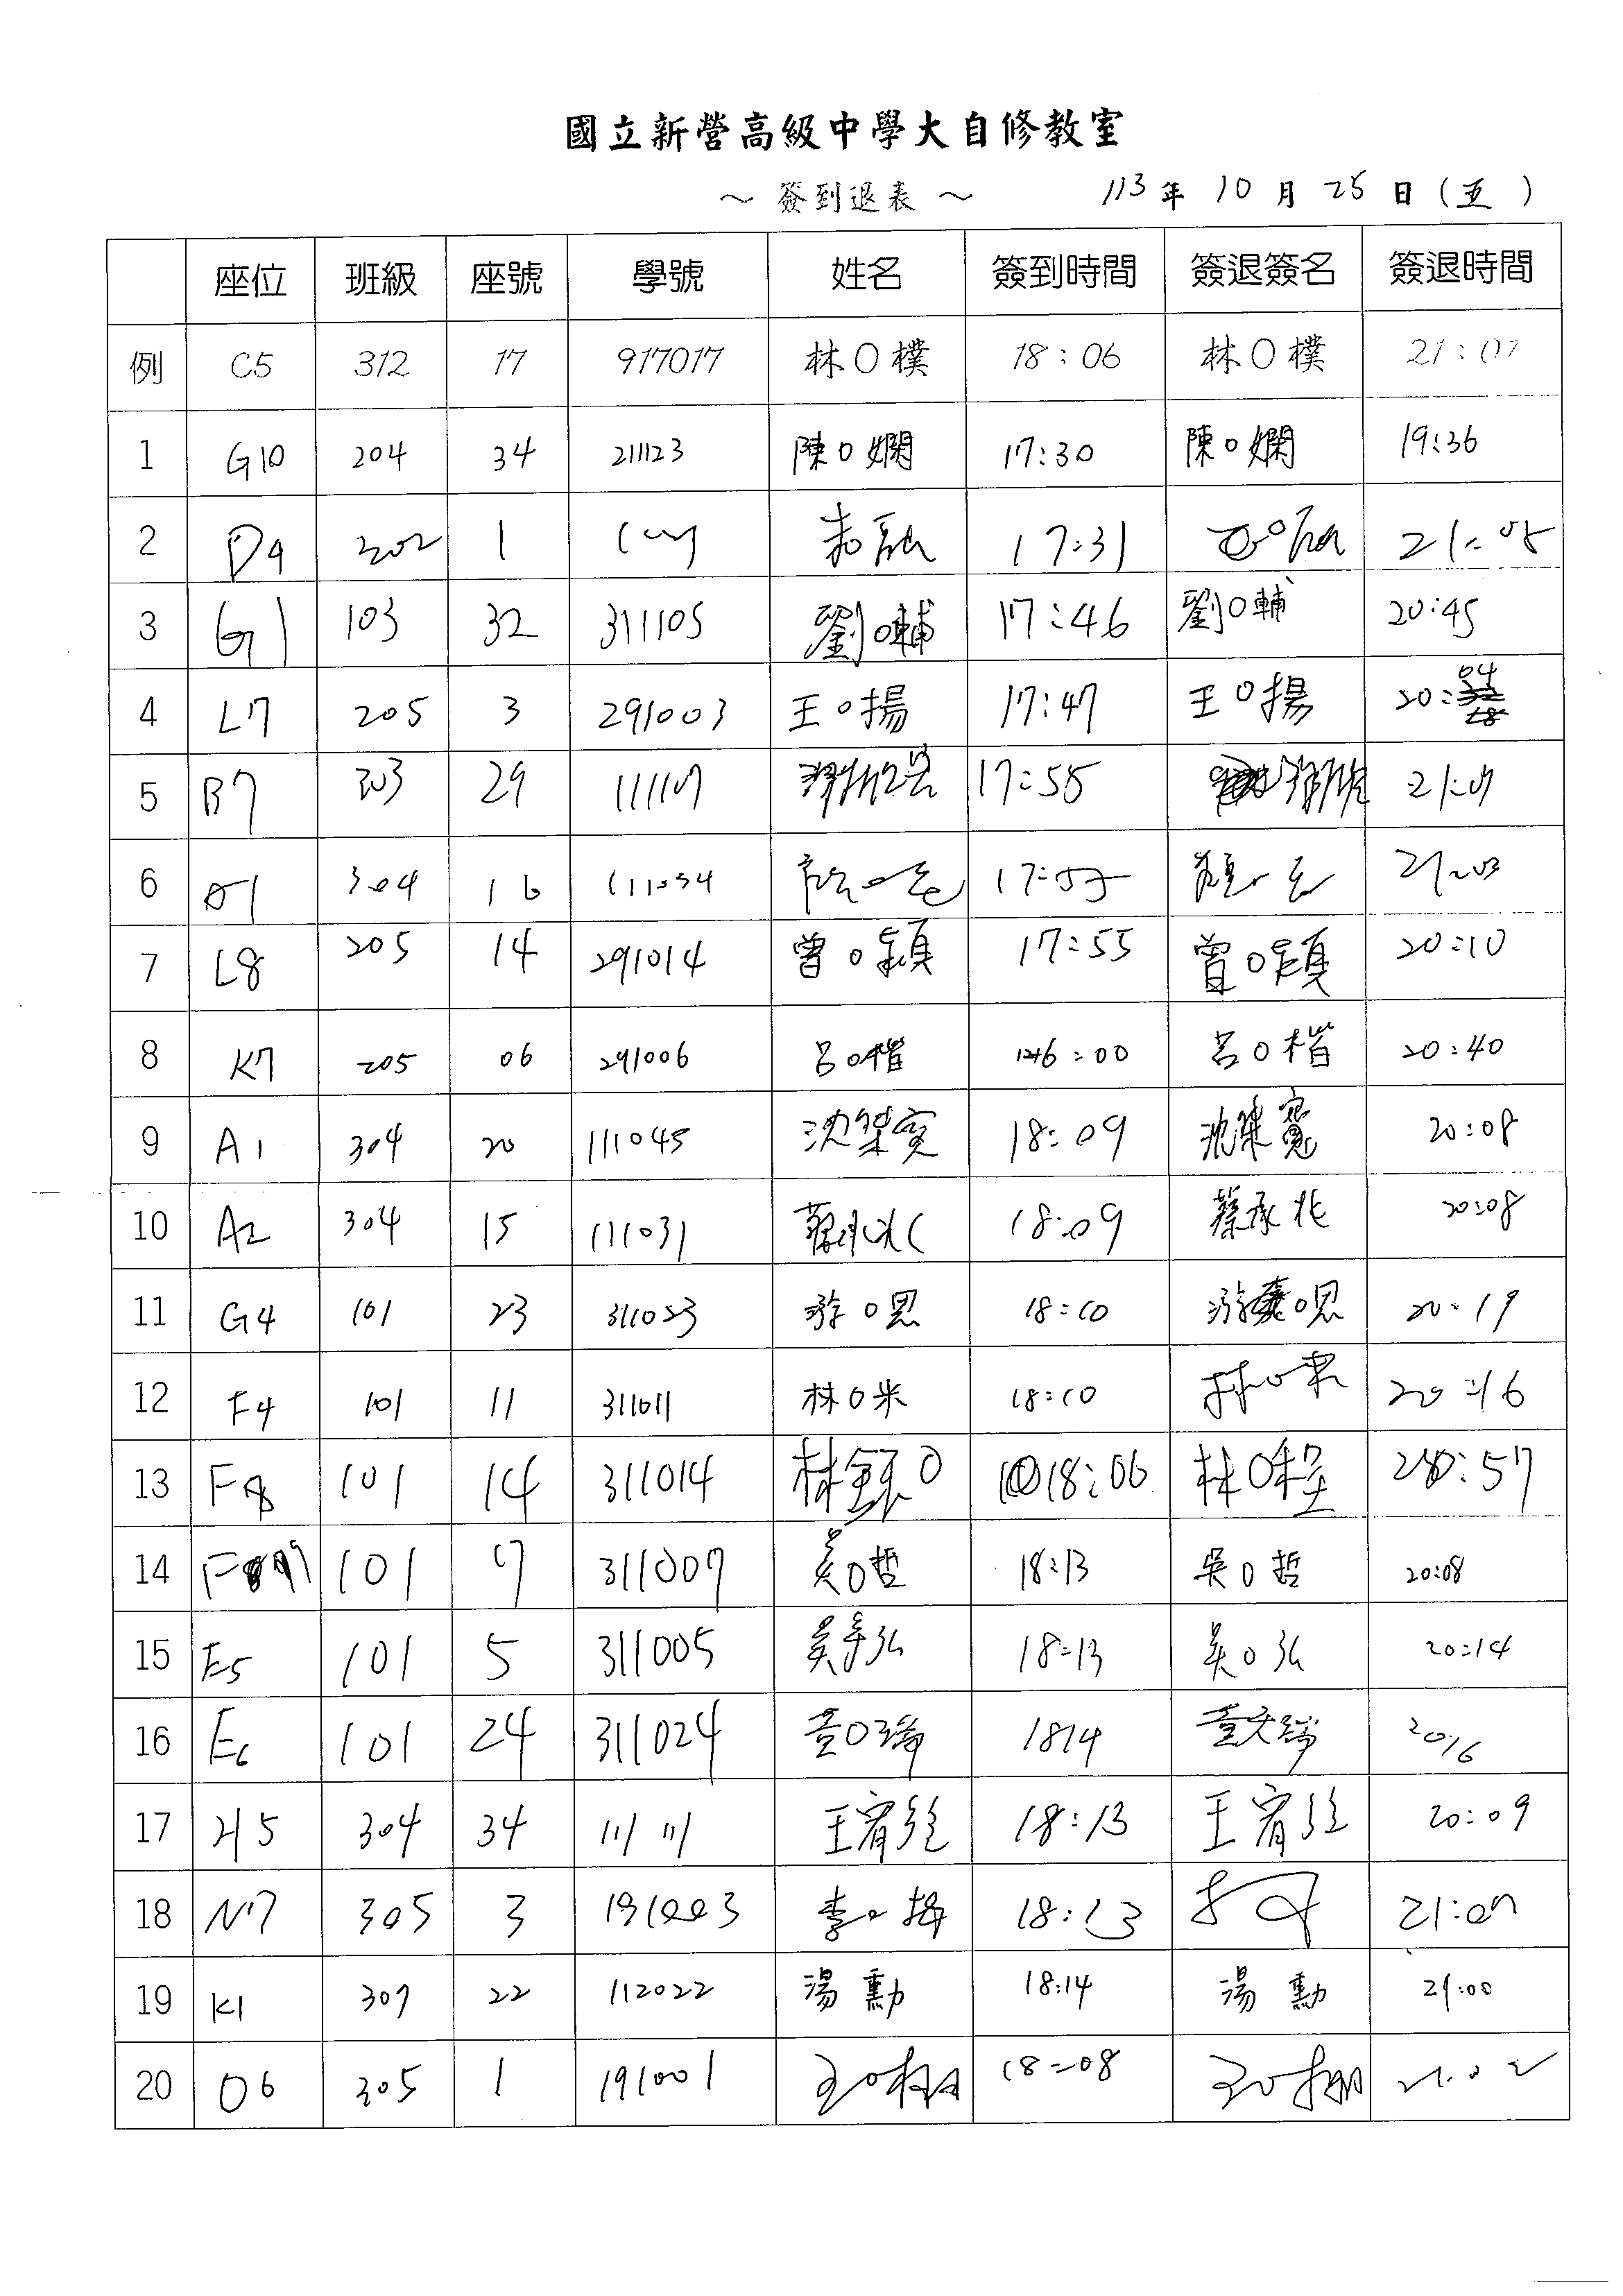 國立新營高級中學大自修教室
～ 簽到退表 ～ 113 年 10 月 25 日 (五)
座位 班級 座號 學號 姓名 簽到時間 簽退簽名 簽退時間
例 C5 312 17 917017 林O樸 18:06 林O樸 21:07
1 G10 204 34 211123 陳O嫻 17:30 陳O嫻 19:36
2 D9 202 1 17:31
3 G1 103 32 311105 劉O輔 17:46 劉O輔 20:45
4 L7 205 3 291003 王O揚 17:47 王O揚 20:04
5 B7 303 29 17:58 21:07
6 304 16 111034 21:03
7 L8 205 14 291014 曾O穎 17:55 曾O穎 20:10
8 K7 205 06 291006 呂O楷 呂O楷 20:40
9 A1 304 20 111045 18:09 20:08
10 A2 304 15 111031 18:09 蔡承兆 20:08
11 G4 101 23 311023 游O恩 18:10 20:19
12 F4 101 11 311011 林O米 18:10 20:16
13 F8 101 14 311014 18:06 林O程 20:57
14 F9 101 7 311007 吳O哲 18:13 吳O哲 20:08
15 E5 101 5 311005 18:13 吳O弘 20:14
16 E6 101 24 311024 1814 2016
17 H5 304 34 111111 18:13 20:09
18 N7 305 3 191003 18:13 21:07
19 K1 307 22 112022 湯 勳 18:14 湯 勳 21:00
20 O6 305 1 191001 18:08 21:02